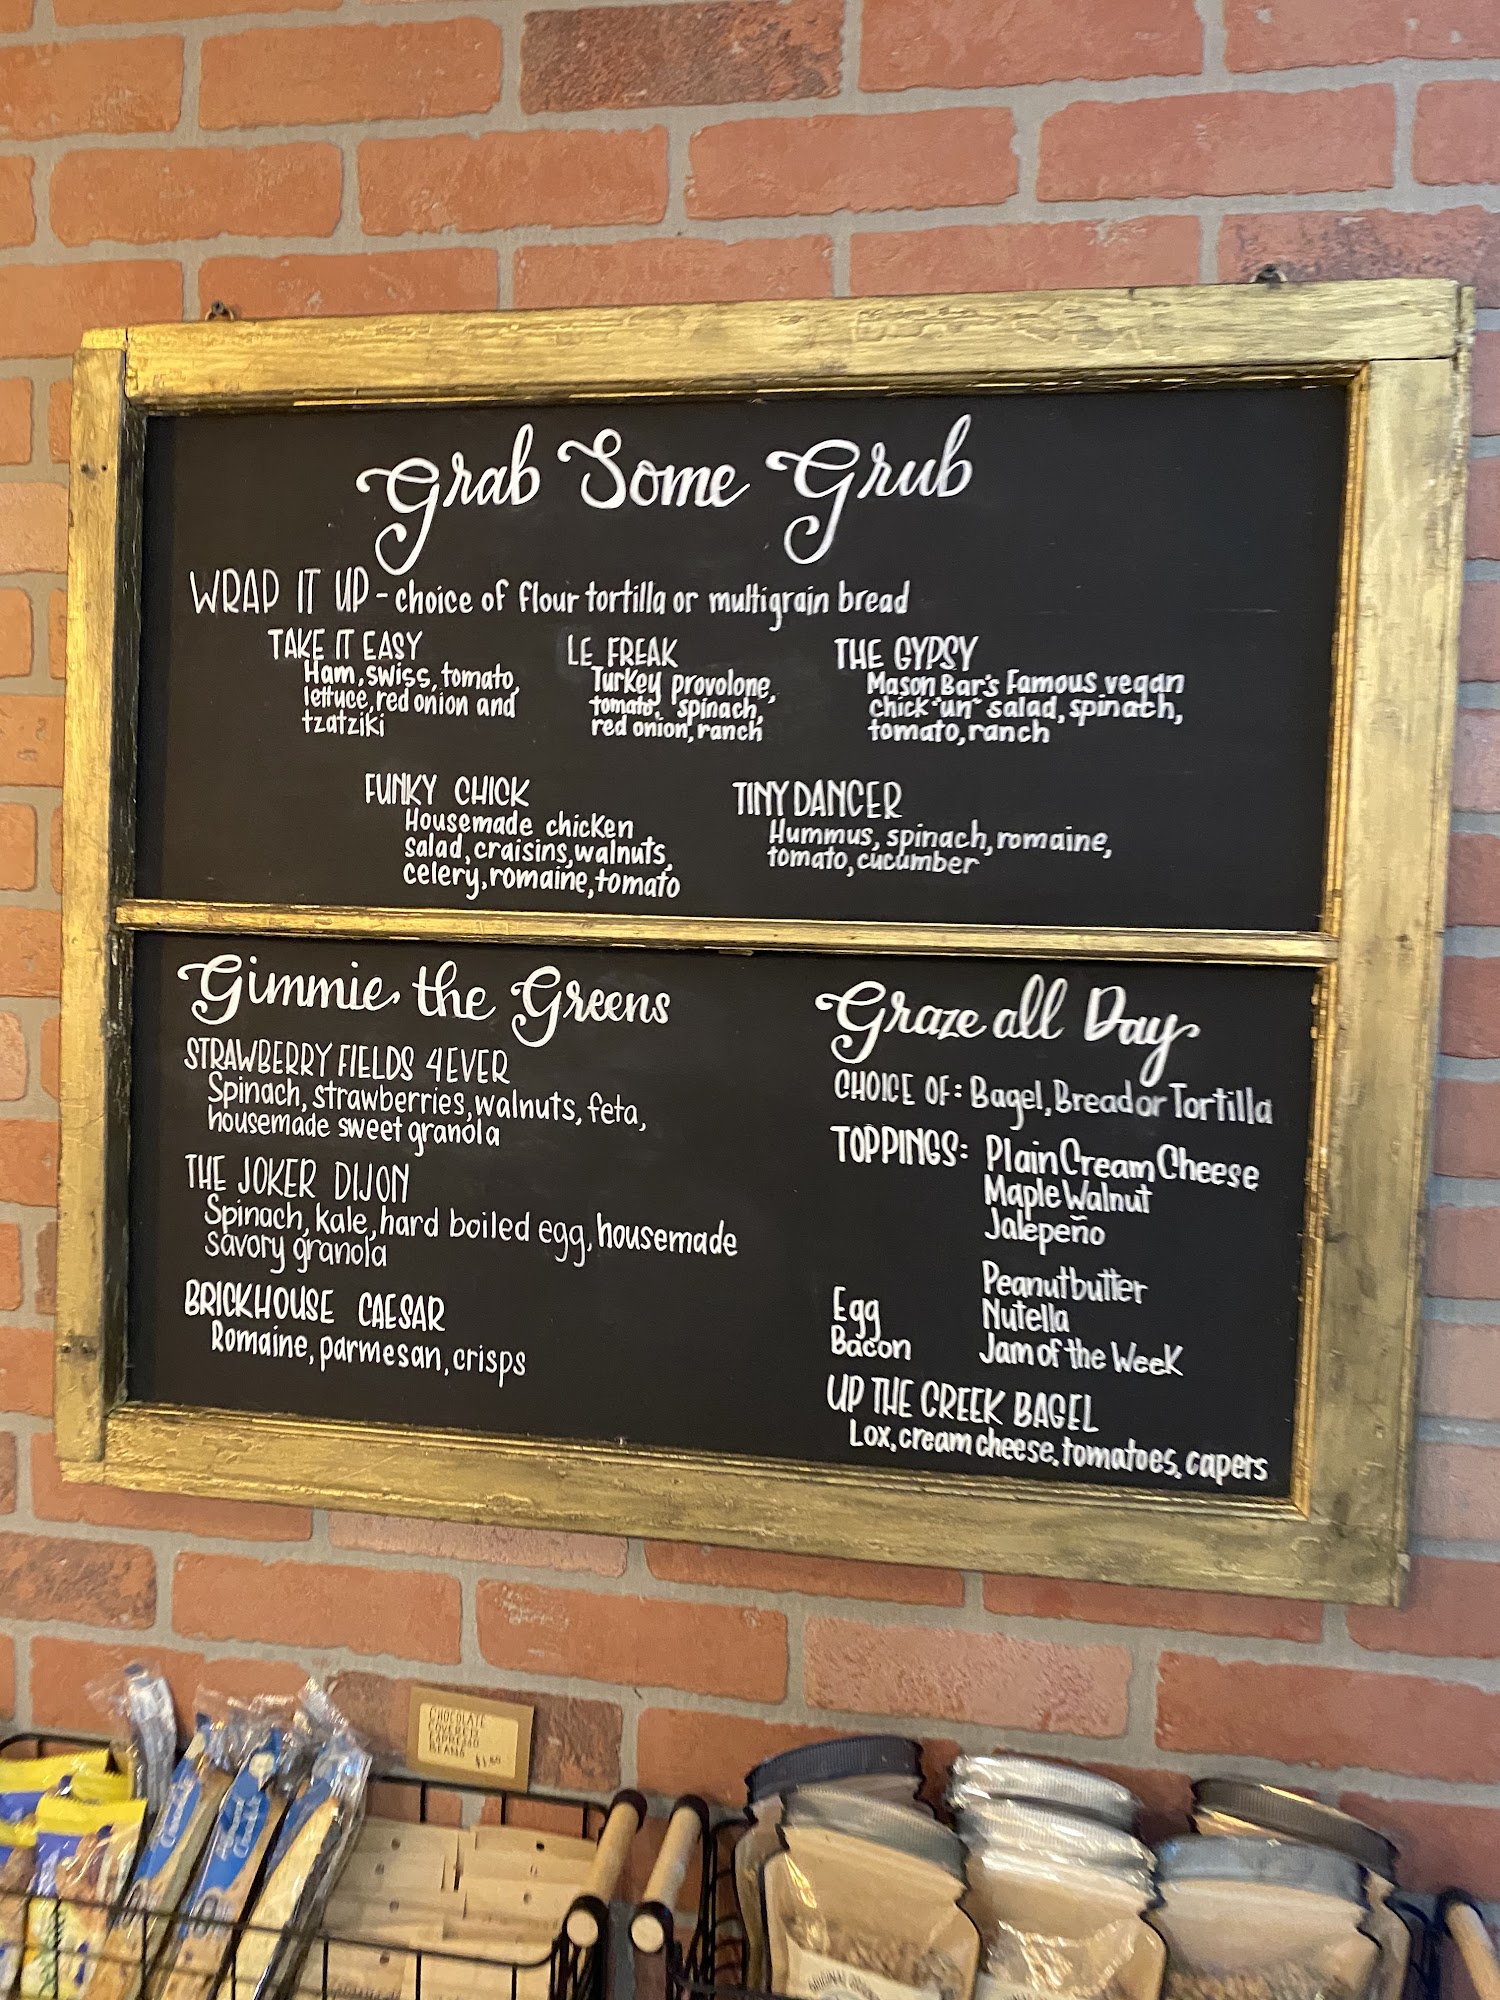 Grab Some Grub
WRAP IT UP - choice of flour tortilla or multigrain bread
TAKE IT EASY
Ham, swiss, tomato,
lettuce, red onion and
tzatziki
LE FREAK
Turkey provolone,
tomato, spinach,
red onion, ranch
THE GYPSY
Mason Bar's Famous vegan
chick "un" salad, spinach,
tomato, ranch
FUNKY CHICK
Housemade chicken
salad, craisins, walnuts,
celery, romaine, tomato
TINY DANCER
Hummus, spinach, romaine,
tomato, cucumber
Gimmie the Greens
STRAWBERRY FIELDS 4EVER
Spinach, strawberries, walnuts, feta,
housemade sweet granola
THE JOKER DIJON
Spinach, kale, hard boiled egg, housemade
savory granola
BRICKHOUSE CAESAR
Romaine, parmesan, crisps
Graze all Day
CHOICE OF: Bagel, Bread or Tortilla
TOPPINGS: Plain Cream Cheese
Maple Walnut
Jalepeño
Peanut butter
Nutella
Jam of the Week
Egg
Bacon
UP THE CREEK BAGEL
Lox, cream cheese, tomatoes, capers
CHOCOLATE
COVERED
ESPRESSO
BEANS
ORIGINAL